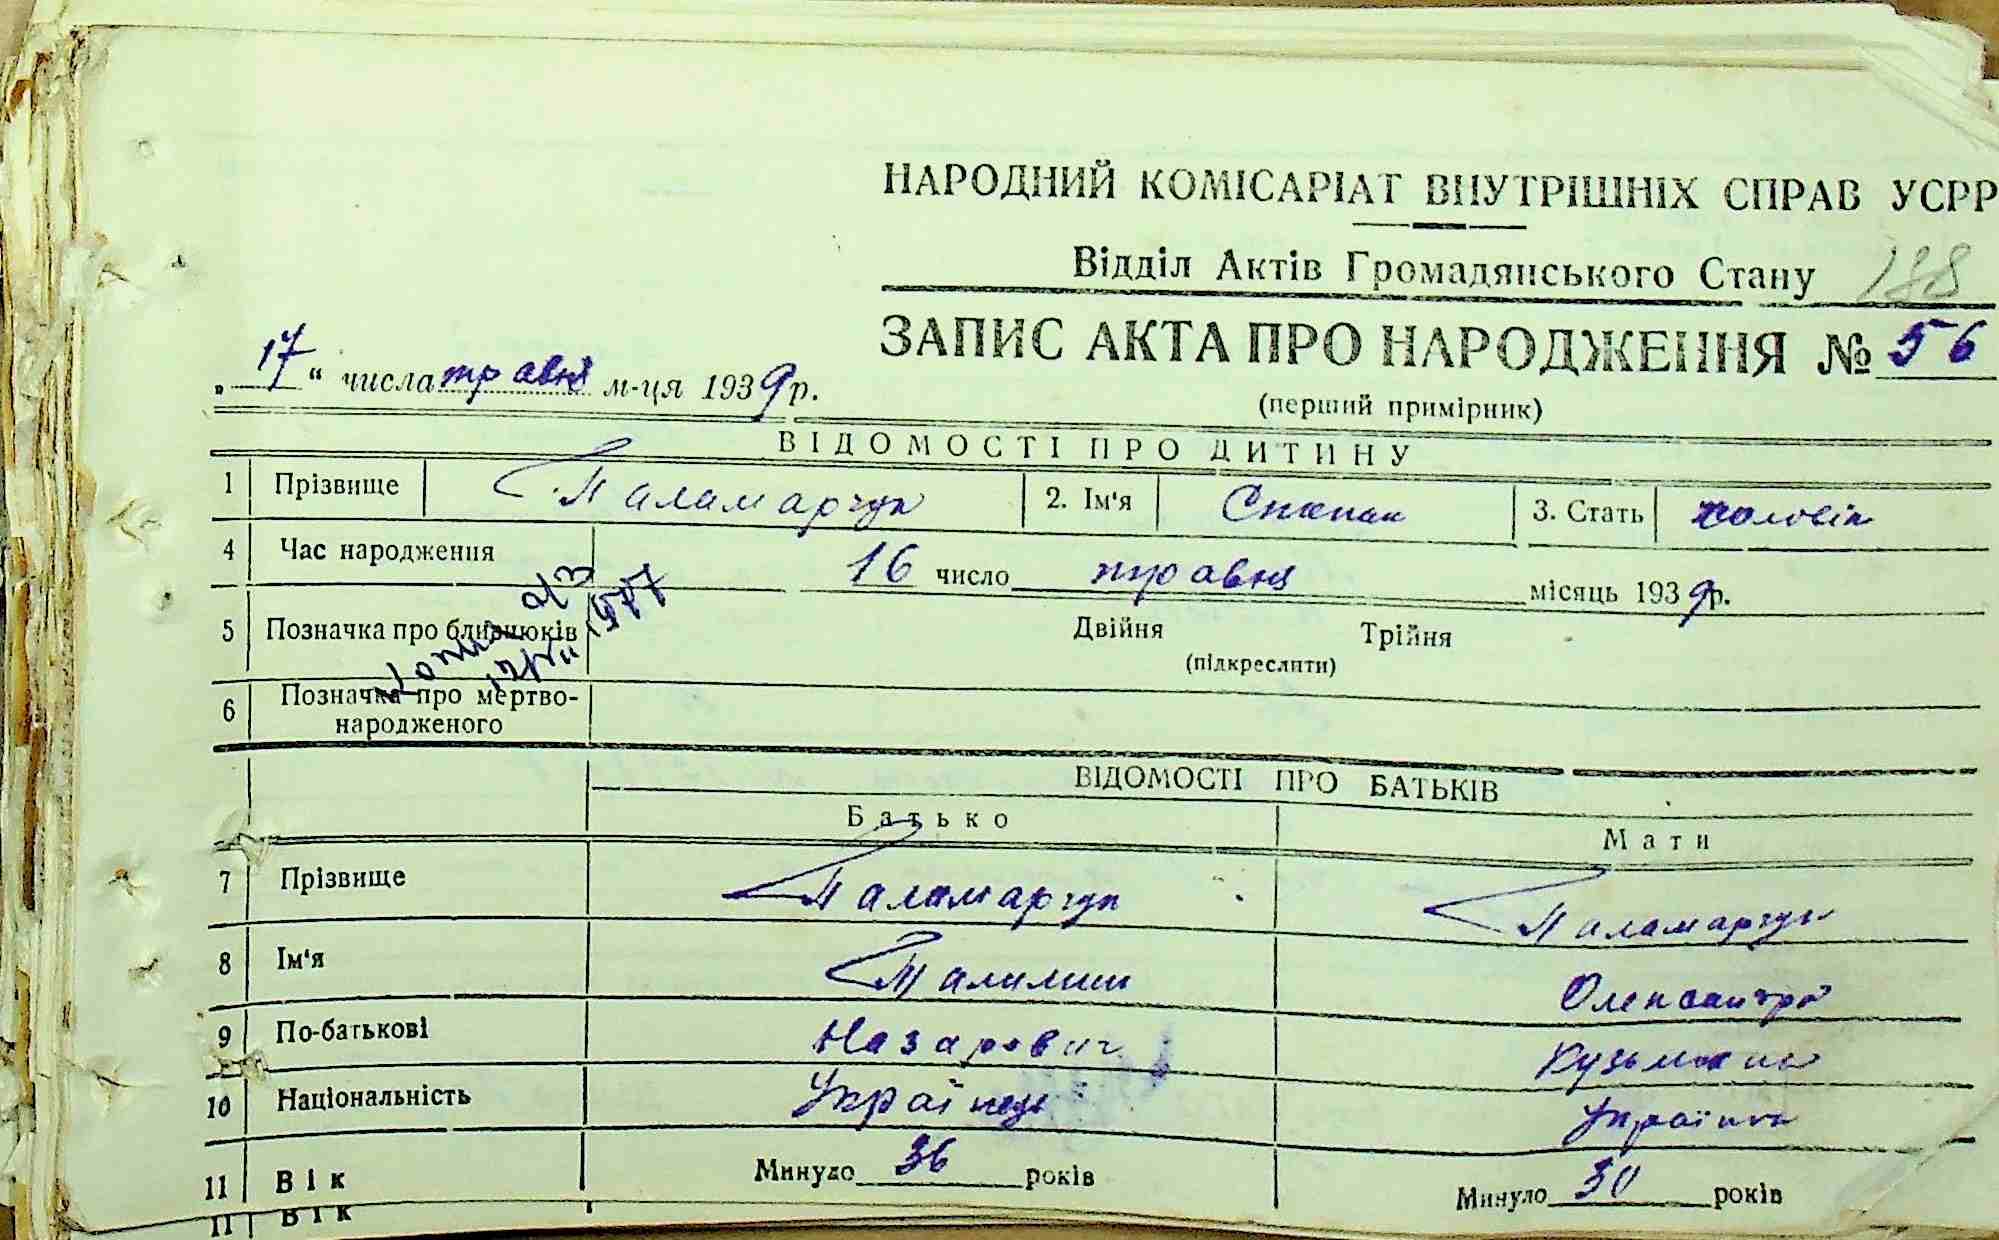 НАРОДНИЙ КОМІСАРІАТ ВНУТРІШНІХ СПРАВ УСРР
Відділ Актів Громадянського Стану 188
ЗАПИС АКТА ПРО НАРОДЖЕННЯ № 56
„17“ числа травня м-ця 1939 р.
(перший примірник)
ВІДОМОСТІ ПРО ДИТИНУ
1 Прізвище Паламарчук 2. Ім'я Степан 3. Стать чоловік
4 Час народження 16 число травня місяць 1939 р.
5 Позначка про близнюків Двійня Трійня
(підкреслити)
1977
6 Позначка про мертво-
народженого
ВІДОМОСТІ ПРО БАТЬКІВ
Батько Мати
7 Прізвище Паламарчук Паламарчук
8 Ім'я Олександра
9 По-батькові Назарович
10 Національність Українець Українка
11 Вік Минуло 36 років Минуло 30 років
11 Вік